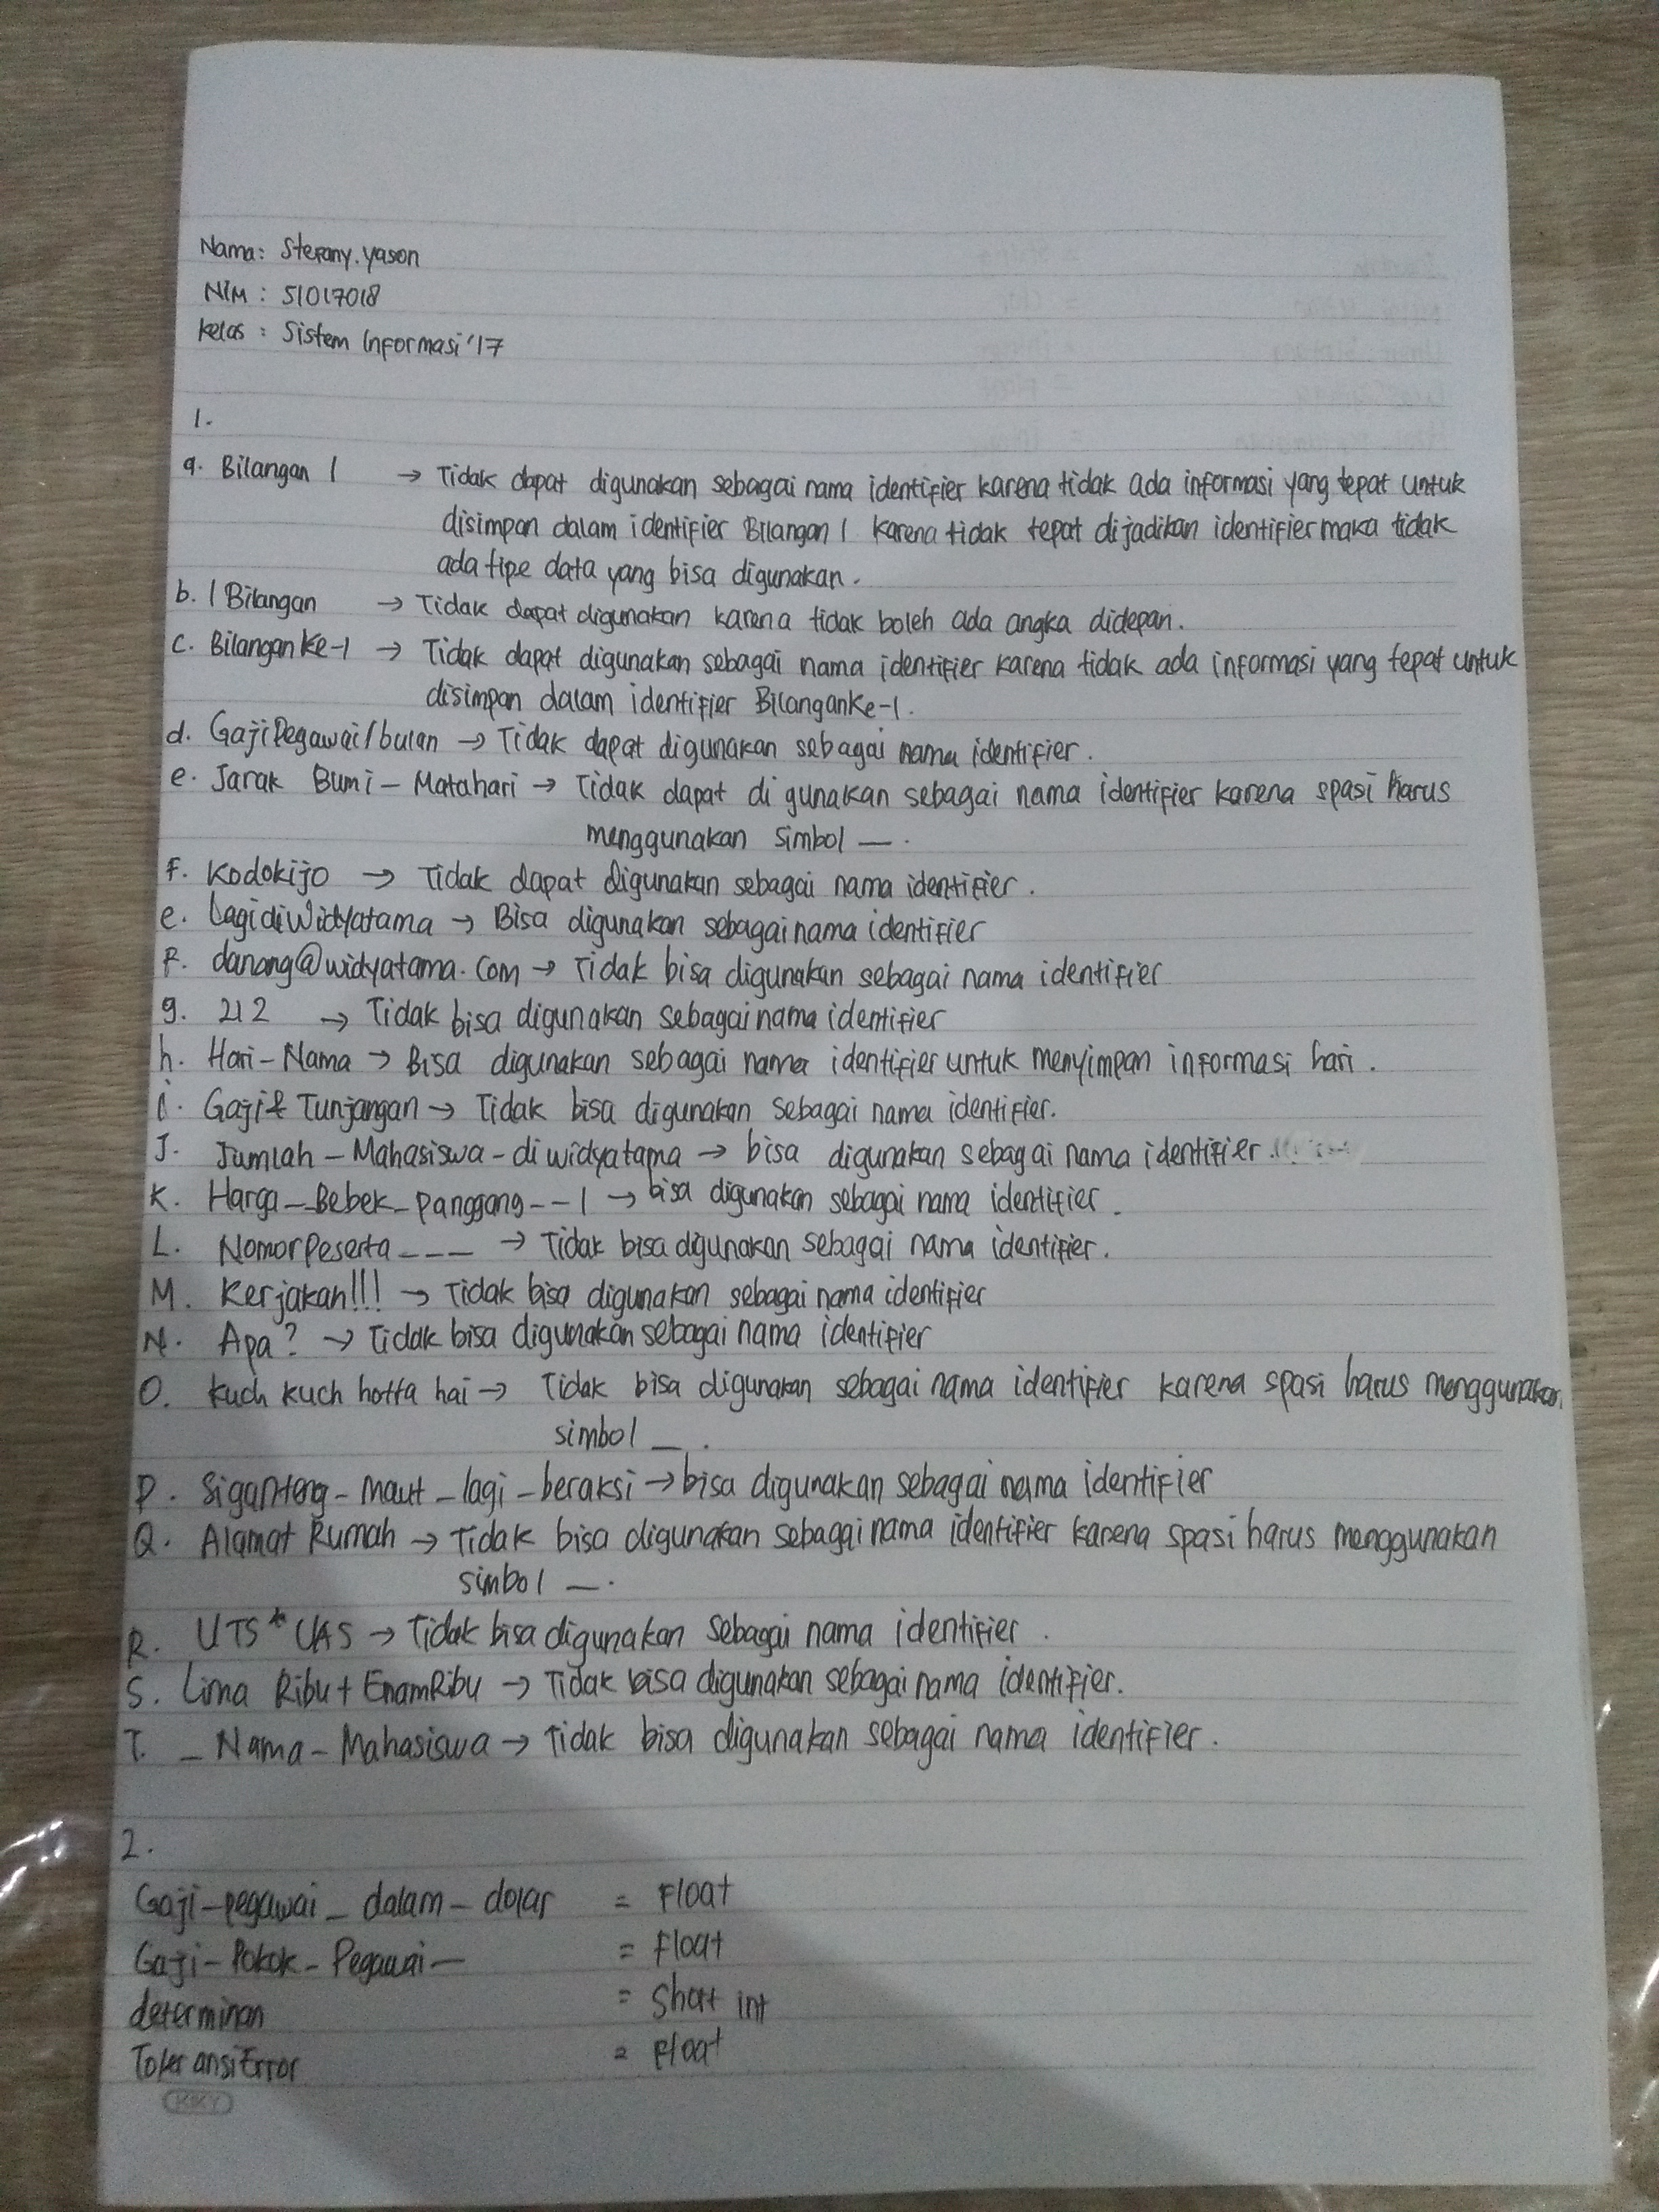 Nama: Stefany.yason
NIM : 51017018
Kelas : Sistem Informasi'17
1.
a. Bilangan 1 → Tidak dapat digunakan sebagai nama identifier karena tidak ada informasi yang tepat untuk
disimpan dalam identifier Bilangan 1 karena tidak tepat dijadikan identifier maka tidak
ada tipe data yang bisa digunakan.
b. 1 Bilangan → Tidak dapat digunakan karena tidak boleh ada angka didepan.
c. BilanganKe-1 → Tidak dapat digunakan sebagai nama identifier karena tidak ada informasi yang tepat untuk
disimpan dalam identifier BilanganKe-1.
d. GajiPegawai/bulan → Tidak dapat digunakan sebagai nama identifier.
e. Jarak Bumi - Matahari → Tidak dapat di gunakan sebagai nama identifier karena spasi harus
menggunakan simbol _.
F. Kodokijo → Tidak dapat digunakan sebagai nama identifier.
e. LagidiWidyatama → Bisa digunakan sebagai nama identifier
F. danang@widyatama.com → Tidak bisa digunakan sebagai nama identifier
g. 212 → Tidak bisa digunakan sebagai nama identifier
h. Hari-Nama → Bisa digunakan sebagai nama identifier untuk menyimpan informasi hari.
i. Gaji& Tunjangan → Tidak bisa digunakan sebagai nama identifier.
J. Jumlah-Mahasiswa-diwidyatama → bisa digunakan sebagai nama identifier.
K. Harga__Bebek_panggang--1 → bisa digunakan sebagai nama identifier.
L. NomorPeserta___ → Tidak bisa digunakan sebagai nama identifier.
M. Kerjakan!!! → Tidak bisa digunakan sebagai nama identifier
N. Apa? → Tidak bisa digunakan sebagai nama identifier
O. kuch kuch hotta hai → Tidak bisa digunakan sebagai nama identifier karena spasi harus menggunakan
simbol _.
P. Siganteng-maut_lagi_beraksi → bisa digunakan sebagai nama identifier
Q. Alamat Rumah → Tidak bisa digunakan sebagai nama identifier karena spasi harus menggunakan
simbol _.
R. UTS*UAS → Tidak bisa digunakan sebagai nama identifier.
S. Lima Ribu+EnamRibu → Tidak bisa digunakan sebagai nama identifier.
T. _Nama-Mahasiswa → Tidak bisa digunakan sebagai nama identifier.
2.
Gaji-pegawai_dalam-dolar = Float
Gaji-Pokok-Pegawai_ = Float
determinan = Short int
ToleransiError = Float
KKY